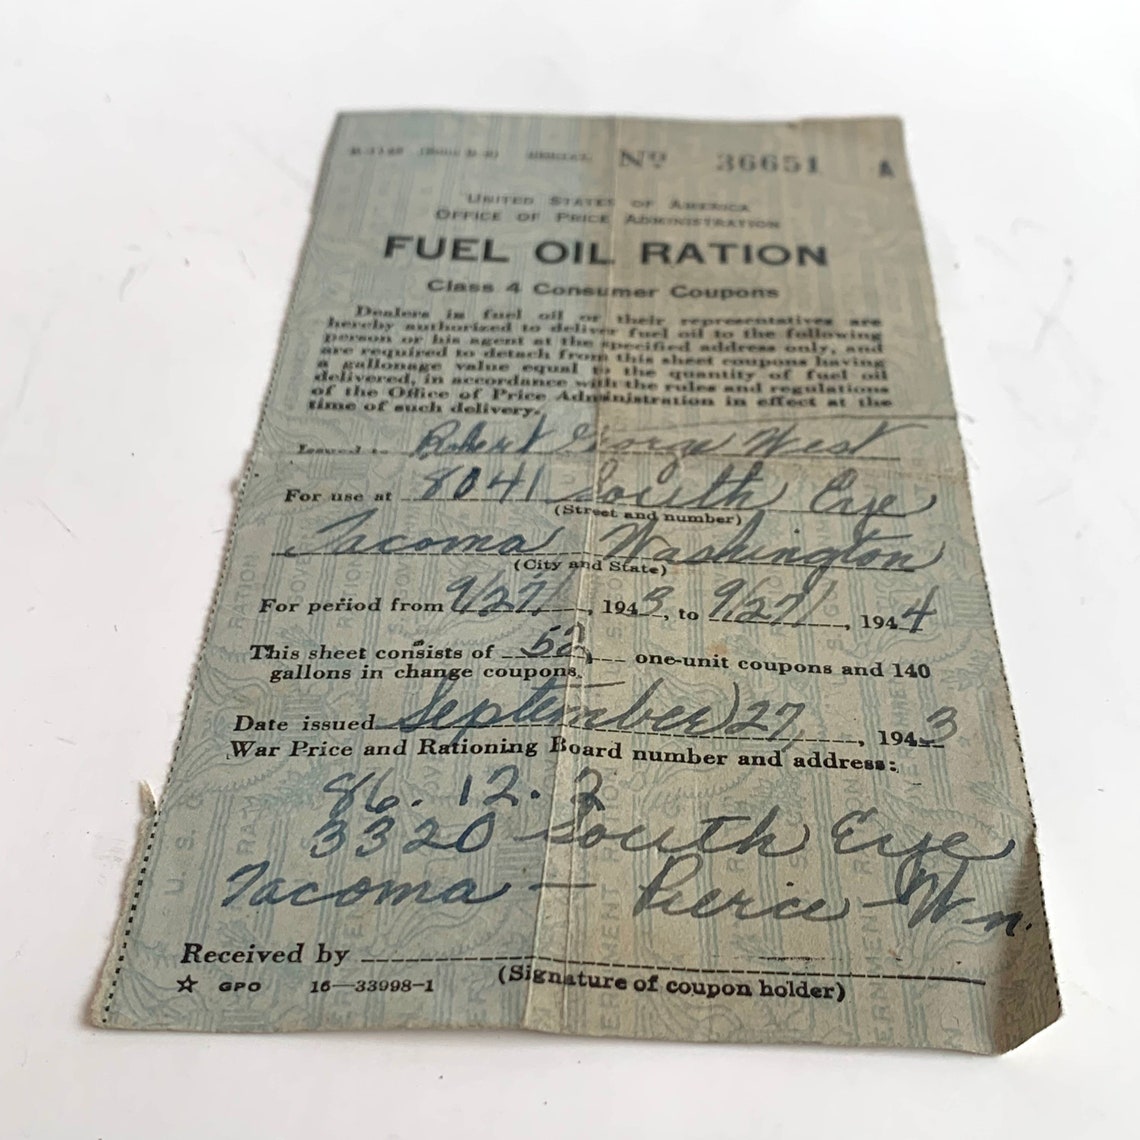 Nº 36651 A
UNITED STATES OF AMERICA
OFFICE OF PRICE ADMINISTRATION
FUEL OIL RATION
Class 4 Consumer Coupons
Dealers in fuel oil or their representatives are
hereby authorized to deliver fuel oil to the following
person or his agent at the specified address only, and
are required to detach from this sheet coupons having
a gallonage value equal to the quantity of fuel oil
delivered, in accordance with the rules and regulations
of the Office of Price Administration in effect at the
time of such delivery.
Issued to Robert George West
For use at 8041 South Eye
(Street and number)
Tacoma Washington
(City and State)
For period from 9/27/, 1943, to 9/27/, 1944
This sheet consists of 52 one-unit coupons and 140
gallons in change coupons.
Date issued September 27, 1943
War Price and Rationing Board number and address:
86.12.2
3320 South Eye
Tacoma — Pierce - Wn.
Received by
(Signature of coupon holder)
☆ GPO 16—33998-1